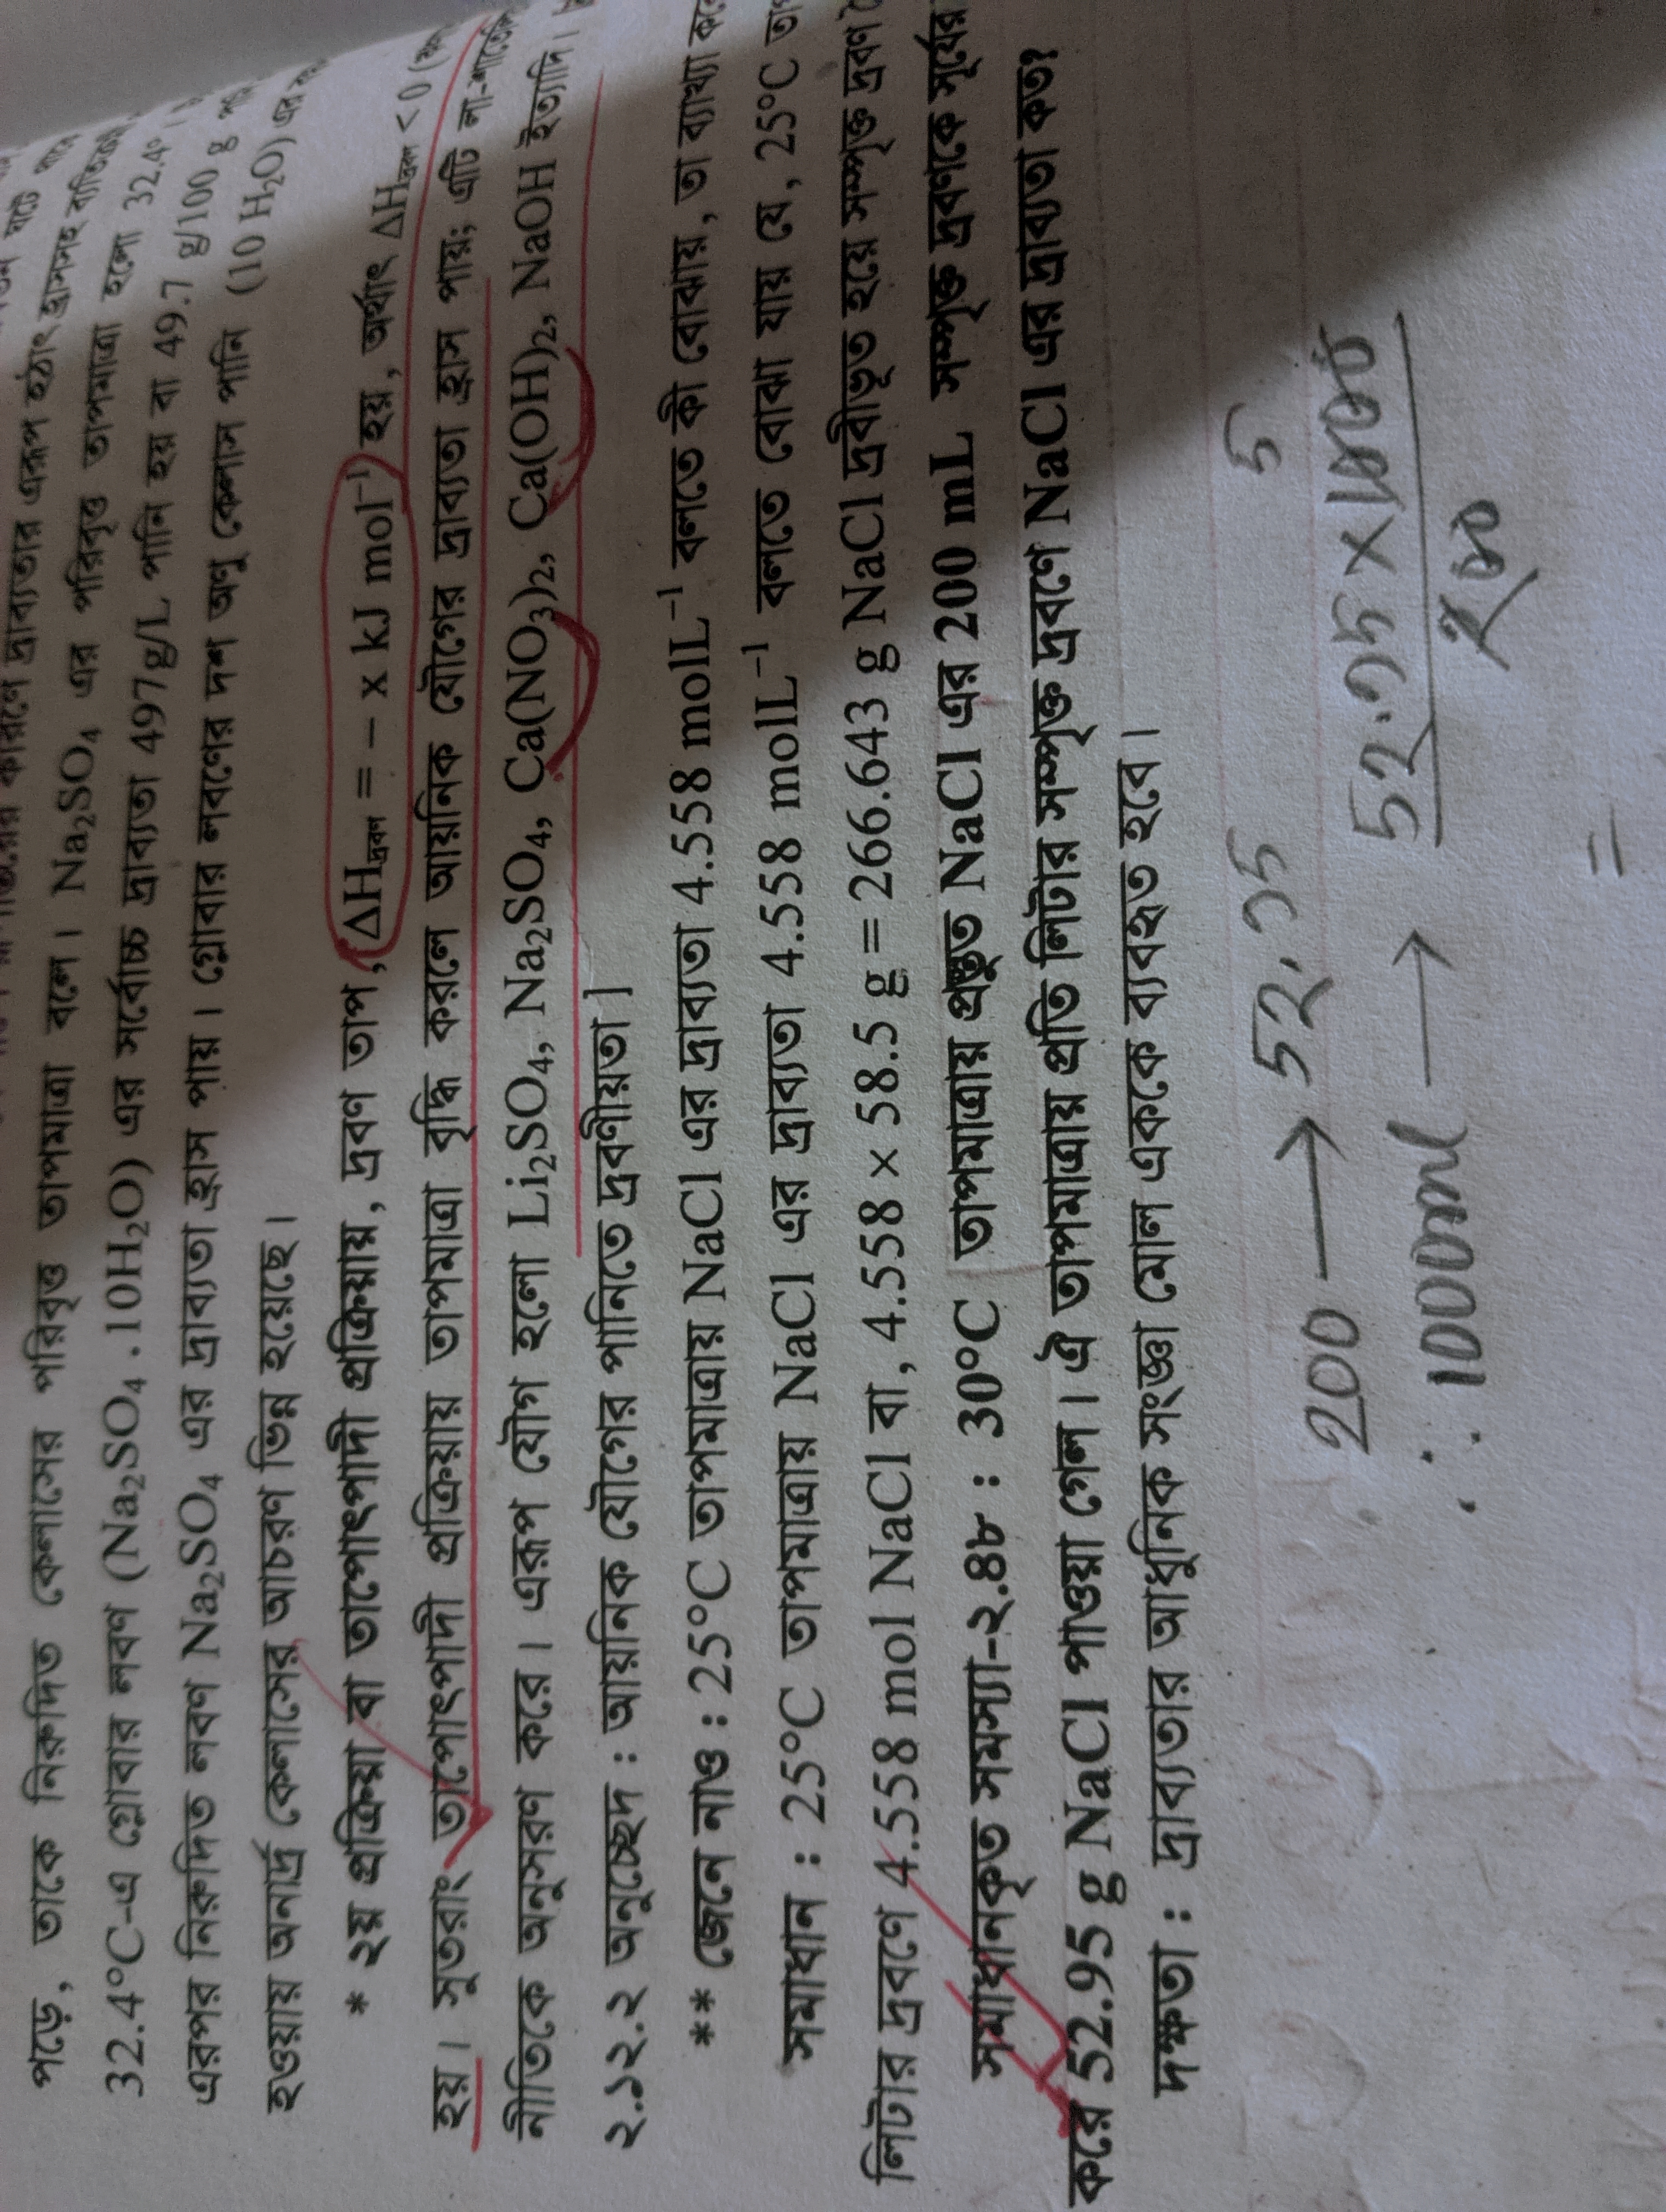 পড়ে, তাকে নিরুদিত কেলাসের পরিবৃত্ত তাপমাত্রা বলে। Na₂SO₄ এর পরিবৃত্ত তাপমাত্রা হলো 32.4°
32.4°C-এ গ্লোবার লবণ (Na₂SO₄ . 10H₂O) এর সর্বোচ্চ দ্রাব্যতা 497g/L পানি হয় বা 49.7 g/100 g
এরপর নিরুদিত লবণ Na₂SO₄ এর দ্রাব্যতা হ্রাস পায়। গ্লোবার লবণের দশ অণু কেলাস পানি (10 H₂O) এর
হওয়ায় অনার্দ্র কেলাসের আচরণ ভিন্ন হয়েছে।
* ২য় প্রক্রিয়া বা তাপোৎপাদী প্রক্রিয়ায়, দ্রবণ তাপ, ΔHদ্রবণ = – x kJ mol⁻¹ হয়, অর্থাৎ ΔHদ্রবণ < 0
হয়। সুতরাং তাপোৎপাদী প্রক্রিয়ায় তাপমাত্রা বৃদ্ধি করলে আয়নিক যৌগের দ্রাব্যতা হ্রাস পায়; এটি লা-শাতেলি
নীতিকে অনুসরণ করে। এরূপ যৌগ হলো Li₂SO₄, Na₂SO₄, Ca(NO₃)₂, Ca(OH)₂, NaOH ইত্যাদি।
২.১২.২ অনুচ্ছেদ : আয়নিক যৌগের পানিতে দ্রবণীয়তা]
** জেনে নাও : 25°C তাপমাত্রায় NaCl এর দ্রাব্যতা 4.558 molL⁻¹ বলতে কী বোঝায়, তা ব্যাখ্যা
সমাধান : 25°C তাপমাত্রায় NaCl এর দ্রাব্যতা 4.558 molL⁻¹ বলতে বোঝা যায় যে, 25°C
লিটার দ্রবণে 4.558 mol NaCl বা, 4.558 × 58.5 g = 266.643 g NaCl দ্রবীভূত হয়ে সম্পৃক্ত দ্রবণ
সমাধানকৃত সমস্যা-২.৪৮ : 30°C তাপমাত্রায় প্রস্তুত NaCl এর 200 mL সম্পৃক্ত দ্রবণকে সূর্যের
করে 52.95 g NaCl পাওয়া গেল। ঐ তাপমাত্রায় প্রতি লিটার সম্পৃক্ত দ্রবণে NaCl এর দ্রাব্যতা কত?
দক্ষতা : দ্রাব্যতার আধুনিক সংজ্ঞা মোল এককে ব্যবহৃত হবে।
200 → 52.95
5
∴ 1000ml → 52.95 × 1000
200
=